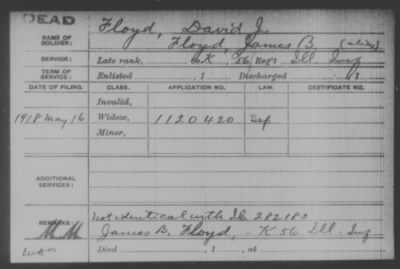 DEAD
NAME OF SOLDIER: Floyd, David J.
Floyd, James B. (alias)
SERVICE: Late rank, K 56 Reg't Ill Inf
TERM OF SERVICE: Enlisted , 1 Discharged , 1
DATE OF FILING. CLASS. APPLICATION NO. LAW. CERTIFICATE NO.
Invalid,
1918 May 16 Widow, 1120420
Minor,
ADDITIONAL SERVICES:
REMARKS: Not identical with Io 282183
James B. Floyd, K 56 Ill. Inf
Died , 1 , at